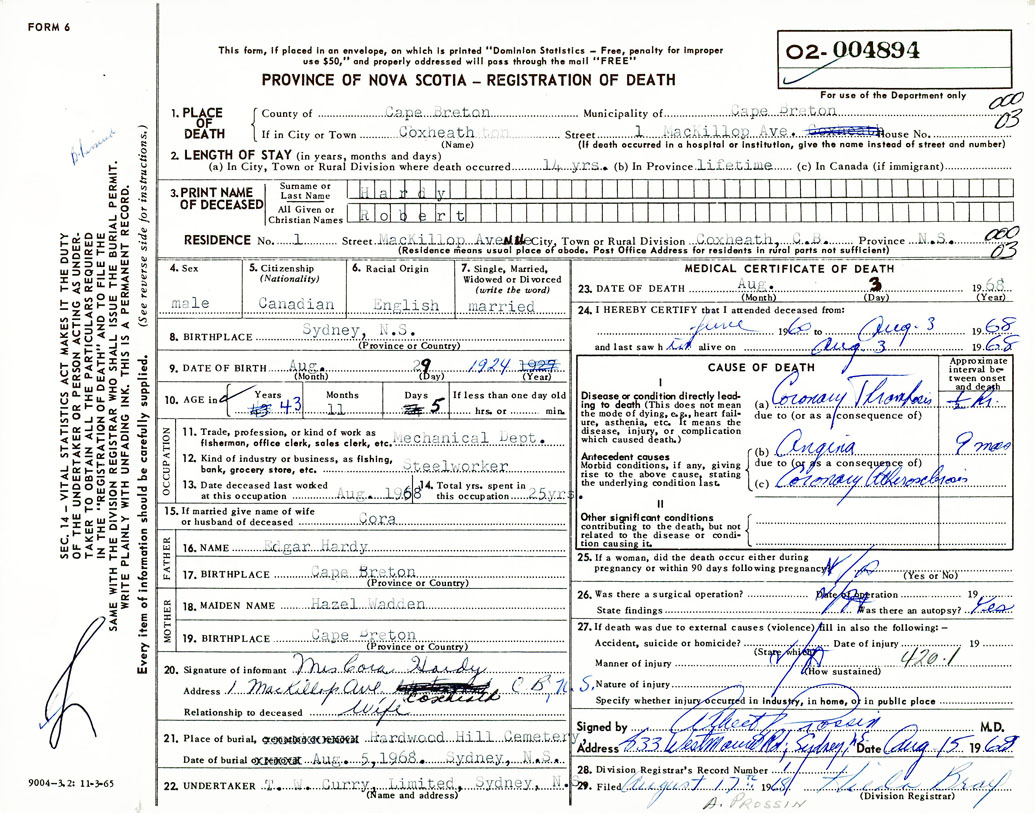 FORM 6
This form, if placed in an envelope, on which is printed "Dominion Statistics – Free, penalty for improper
use $50," and properly addressed will pass through the mail "FREE"
PROVINCE OF NOVA SCOTIA – REGISTRATION OF DEATH
02-004894
For use of the Department only
000
03
1. PLACE OF DEATH
County of Cape Breton Municipality of Cape Breton
If in City or Town Coxheath Street 1 MacKillop Ave. House No.
(Name) (If death occurred in a hospital or institution, give the name instead of street and number)
2. LENGTH OF STAY (in years, months and days)
(a) In City, Town or Rural Division where death occurred 14 yrs. (b) In Province lifetime (c) In Canada (if immigrant)
3. PRINT NAME OF DECEASED
Surname or Last Name Hardy
All Given or Christian Names Robert
RESIDENCE No. 1 Street MacKillop Avenue City, Town or Rural Division Coxheath, C.B. Province N.S.
(Residence means usual place of abode. Post Office Address for residents in rural parts not sufficient)
000
03
4. Sex male
5. Citizenship (Nationality) Canadian
6. Racial Origin English
7. Single, Married, Widowed or Divorced (write the word) married
8. BIRTHPLACE Sydney, N.S.
(Province or Country)
9. DATE OF BIRTH Aug. 29 1924 1925
(Month) (Day) (Year)
10. AGE in Years 43 Months 11 Days 5 If less than one day old
hrs. or min.
OCCUPATION
11. Trade, profession, or kind of work as
fisherman, office clerk, sales clerk, etc. Mechanical Dept.
12. Kind of industry or business, as fishing,
bank, grocery store, etc. Steelworker
13. Date deceased last worked
at this occupation Aug. 1968
14. Total yrs. spent in
this occupation 25yrs.
15. If married give name of wife
or husband of deceased Cora
FATHER
16. NAME Edgar Hardy
17. BIRTHPLACE Cape Breton
(Province or Country)
MOTHER
18. MAIDEN NAME Hazel Wadden
19. BIRTHPLACE Cape Breton
(Province or Country)
20. Signature of informant Mrs Cora Hardy
Address 1 MacKillop Ave Coxheath C B, N.S.
Relationship to deceased Wife
21. Place of burial, Hardwood Hill Cemetery
Date of burial Aug. 5, 1968. Sydney, N.S.
22. UNDERTAKER T. W. Curry, Limited, Sydney, N.S.
(Name and address)
MEDICAL CERTIFICATE OF DEATH
23. DATE OF DEATH Aug. 3 1968
(Month) (Day) (Year)
24. I HEREBY CERTIFY that I attended deceased from:
June 1960 to Aug. 3 1968
and last saw him alive on Aug 3 1968
CAUSE OF DEATH
Approximate interval between onset and death
I
Disease or condition directly leading to death (This does not mean the mode of dying, e.g., heart failure, asthenia, etc. It means the disease, injury, or complication which caused death.)
(a) Coronary Thrombosis ½ hr.
due to (or as a consequence of)
Antecedent causes
Morbid conditions, if any, giving rise to the above cause, stating the underlying condition last.
(b) Angina 9 mos
due to (or as a consequence of)
(c) Coronary Atherosclerosis
II
Other significant conditions
contributing to the death, but not related to the disease or condition causing it.
25. If a woman, did the death occur either during
pregnancy or within 90 days following pregnancy
(Yes or No)
26. Was there a surgical operation? Date of operation 19
State findings Was there an autopsy? Yes
27. If death was due to external causes (violence) fill in also the following: –
Accident, suicide or homicide? Date of injury 19
(State which)
Manner of injury 420.1
(How sustained)
Nature of injury
Specify whether injury occurred in Industry, in home, or in public place
Signed by Albert Prossin M.D.
Address 633 Westmount Rd, Sydney, NS Date Aug 15 1968
28. Division Registrar's Record Number
29. Filed August 17th 1968 Hilda Bray
A. PROSSIN (Division Registrar)
SEC. 14 – VITAL STATISTICS ACT MAKES IT THE DUTY
OF THE UNDERTAKER OR PERSON ACTING AS UNDER-
TAKER TO OBTAIN ALL THE PARTICULARS REQUIRED
IN THE "REGISTRATION OF DEATH" AND TO FILE THE
SAME WITH THE DIVISION REGISTRAR WHO SHALL ISSUE THE BURIAL PERMIT.
WRITE PLAINLY WITH UNFADING INK. THIS IS A PERMANENT RECORD.
Every item of information should be carefully supplied. (See reverse side for instructions.)
9004–3.2: 11-3-65